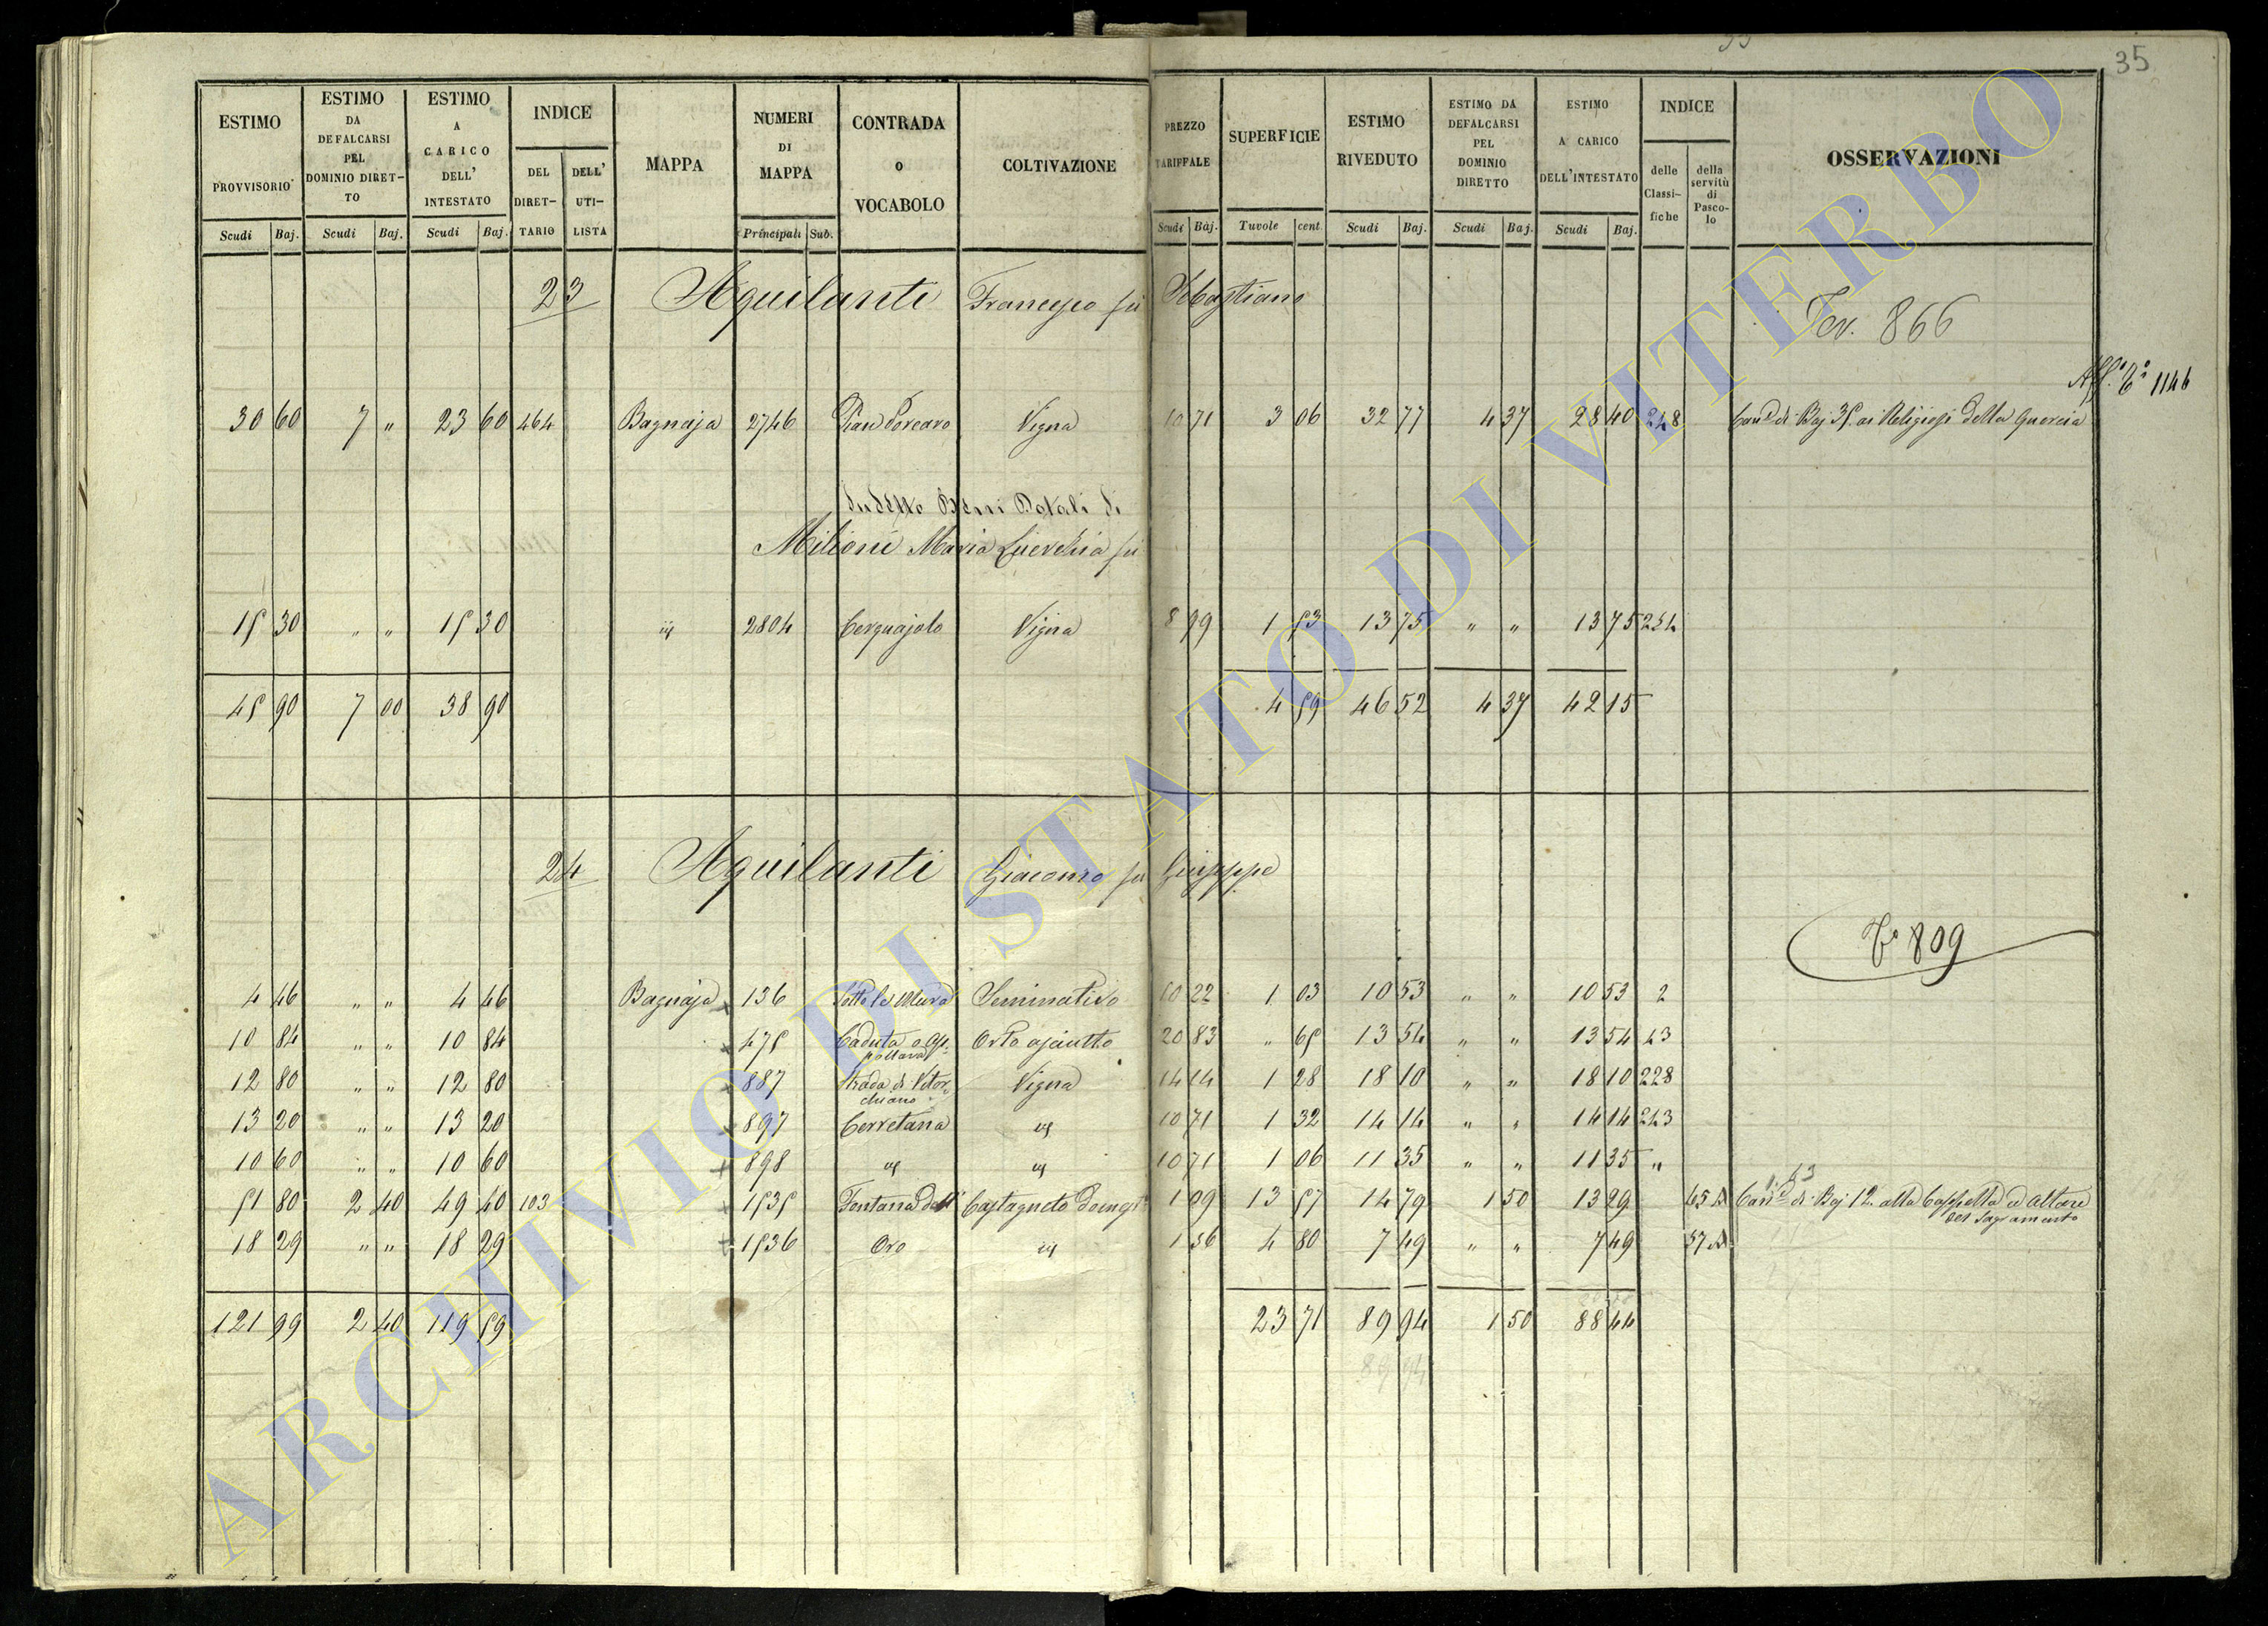 35
ESTIMO PROVVISORIO Scudi Baj.
ESTIMO DA DEFALCARSI PEL DOMINIO DIRETTO Scudi Baj.
ESTIMO A CARICO DELL' INTESTATO Scudi Baj.
INDICE DEL DIRETTARIO DELL' UTILISTA
MAPPA
NUMERI DI MAPPA Principali Sub.
CONTRADA o VOCABOLO
COLTIVAZIONE
PREZZO TARIFFALE Scudi Baj.
SUPERFICIE Tavole cent
ESTIMO RIVEDUTO Scudi Baj.
ESTIMO DA DEFALCARSI PEL DOMINIO DIRETTO Scudi Baj.
ESTIMO A CARICO DELL'INTESTATO Scudi Baj.
INDICE delle Classifiche della servitù di Pascolo
OSSERVAZIONI
23 Aquilanti Francesco fu Sebastiano
866
1146
30 60 7 " 23 60 464 Bagnaja 2746 Pian Porcaro Vigna 10 71 3 06 32 77 4 37 28 40 248 Can.e di Baj 35. ai Religiosi della Quercia
Sudetto Beni Dotali di
Milioni Maria Lucrezia fu
15 30 " " 15 30 iq 2804 Cerquajolo Vigna 8 99 1 53 13 75 " " 13 75 254
45 90 7 00 38 90 4 59 46 52 4 37 42 15
24 Aquilanti Giacomo fu Giuseppe
809
4 46 " " 4 46 Bagnaja 136 Sotto le Mura Seminativo 10 22 1 03 10 53 " " 10 53 2
10 84 " " 10 84 475 Caduta o Orto asciutto 20 83 " 65 13 54 " " 13 54 43
12 80 " " 12 80 887 Strada di Vitorchiano Vigna 14 14 1 28 18 10 " " 18 10 228
13 20 " " 13 20 897 Cerretana iq 10 71 1 32 14 14 " " 14 14 243
10 60 " " 10 60 898 iq iq 10 71 1 06 11 35 " " 11 35 "
51 80 2 40 49 40 103 1535 Fontana dell' Castagneto 1 09 13 57 14 79 1 50 13 29 Can.e di Baj 12. alla Cappella ed altare
del Sagramento
18 29 " " 18 29 1536 Oro iq 1 56 4 80 7 49 " " 7 49
121 99 2 40 119 59 23 71 89 94 1 50 88 44
89 94
ARCHIVIO DI STATO DI VITERBO